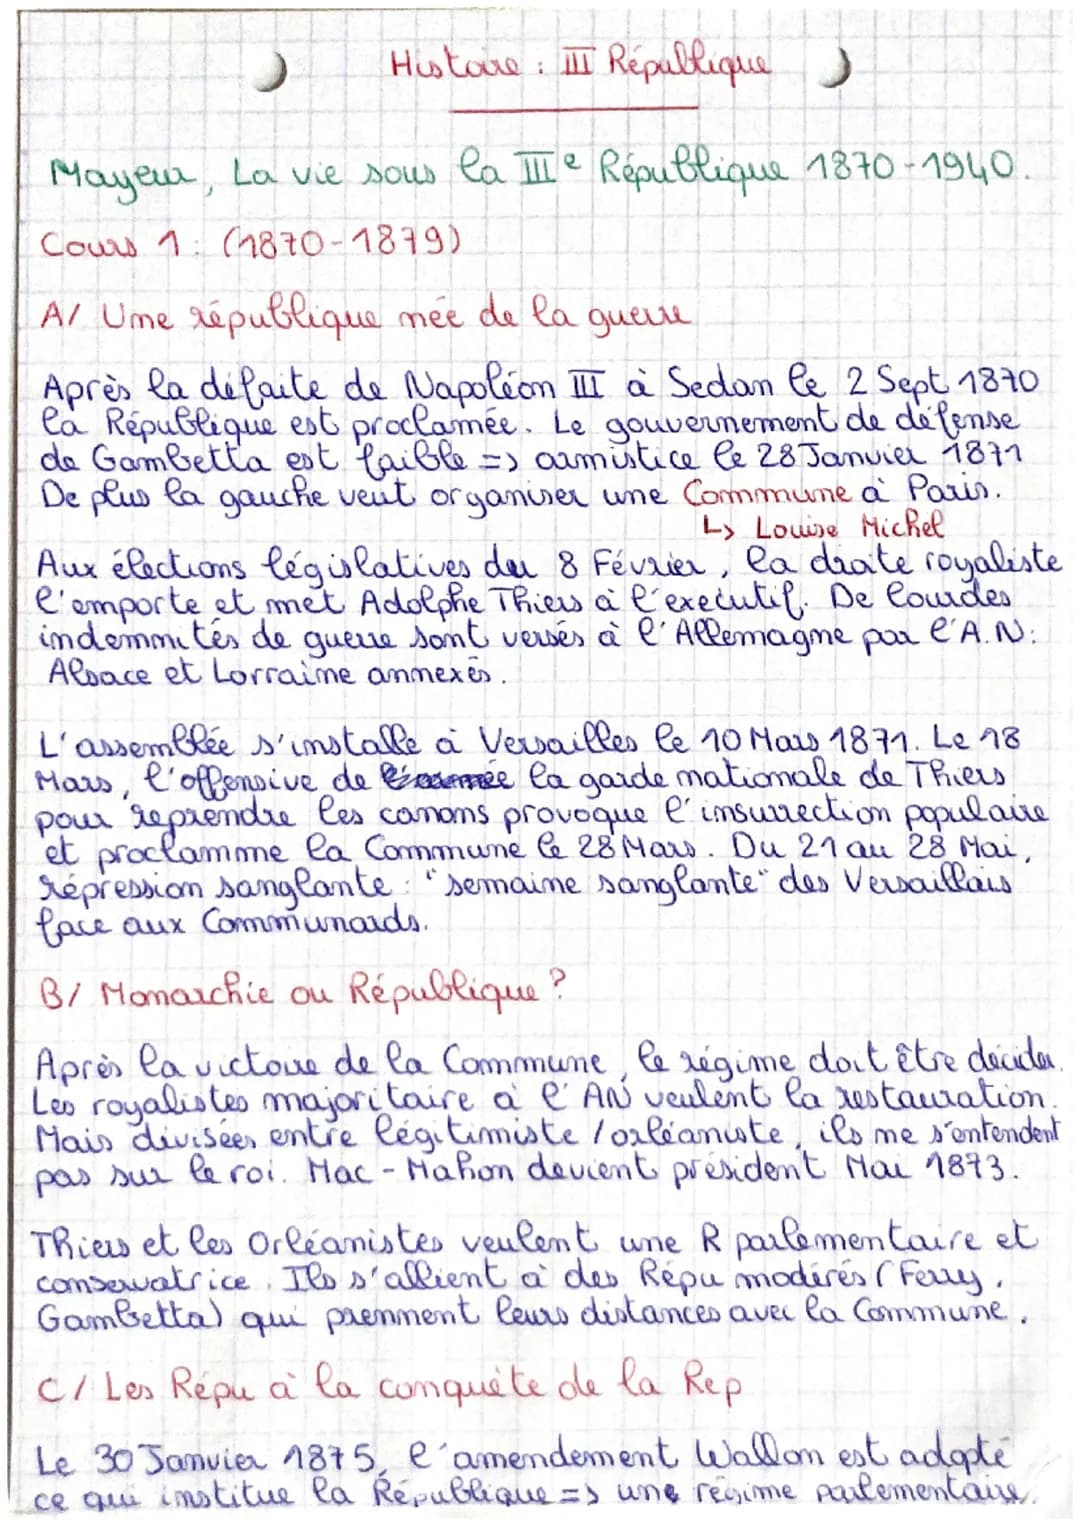 Histoire : III République
Mayeur, La vie sous la IIIe République 1870-1940.
Cours 1 : (1870-1879)
A/ Une république née de la guerre
Après la défaite de Napoléon III à Sedan le 2 Sept 1870
la République est proclamée. Le gouvernement de défense
de Gambetta est faible => armistice le 28 Janvier 1871
De plus la gauche veut organiser une Commune à Paris.
↳ Louise Michel
Aux élections législatives du 8 Février, la droite royaliste
l'emporte et met Adolphe Thiers à l'executif. De lourdes
indemnités de guerre sont versés à l'Allemagne par l'A.N :
Alsace et Lorraine annexés.
L'assemblée s'installe à Versailles le 10 Mars 1871. Le 18
Mars, l'offensive de la garde nationale de Thiers
pour reprendre les canons provoque l'insurrection populaire
et proclamme la Commune le 28 Mars. Du 21 au 28 Mai,
répression sanglante : "semaine sanglante" des Versaillais
face aux Communards.
B/ Monarchie ou République ?
Après la victoire de la Commune, le régime doit être décider.
Les royalistes majoritaire à l'AN veulent la restauration.
Mais divisées entre légitimiste / orléaniste, ils ne s'entendent
pas sur le roi. Mac-Mahon devient président Mai 1873.
Thiers et les Orléanistes veulent une R parlementaire et
conservatrice. Ils s'allient à des Répu modérés (Ferry,
Gambetta) qui prennent leurs distances avec la Commune.
C/ Les Répu à la conquête de la Rep
Le 30 Janvier 1875, l'amendement Wallon est adopté
ce qui institue la République => une régime parlementaire.